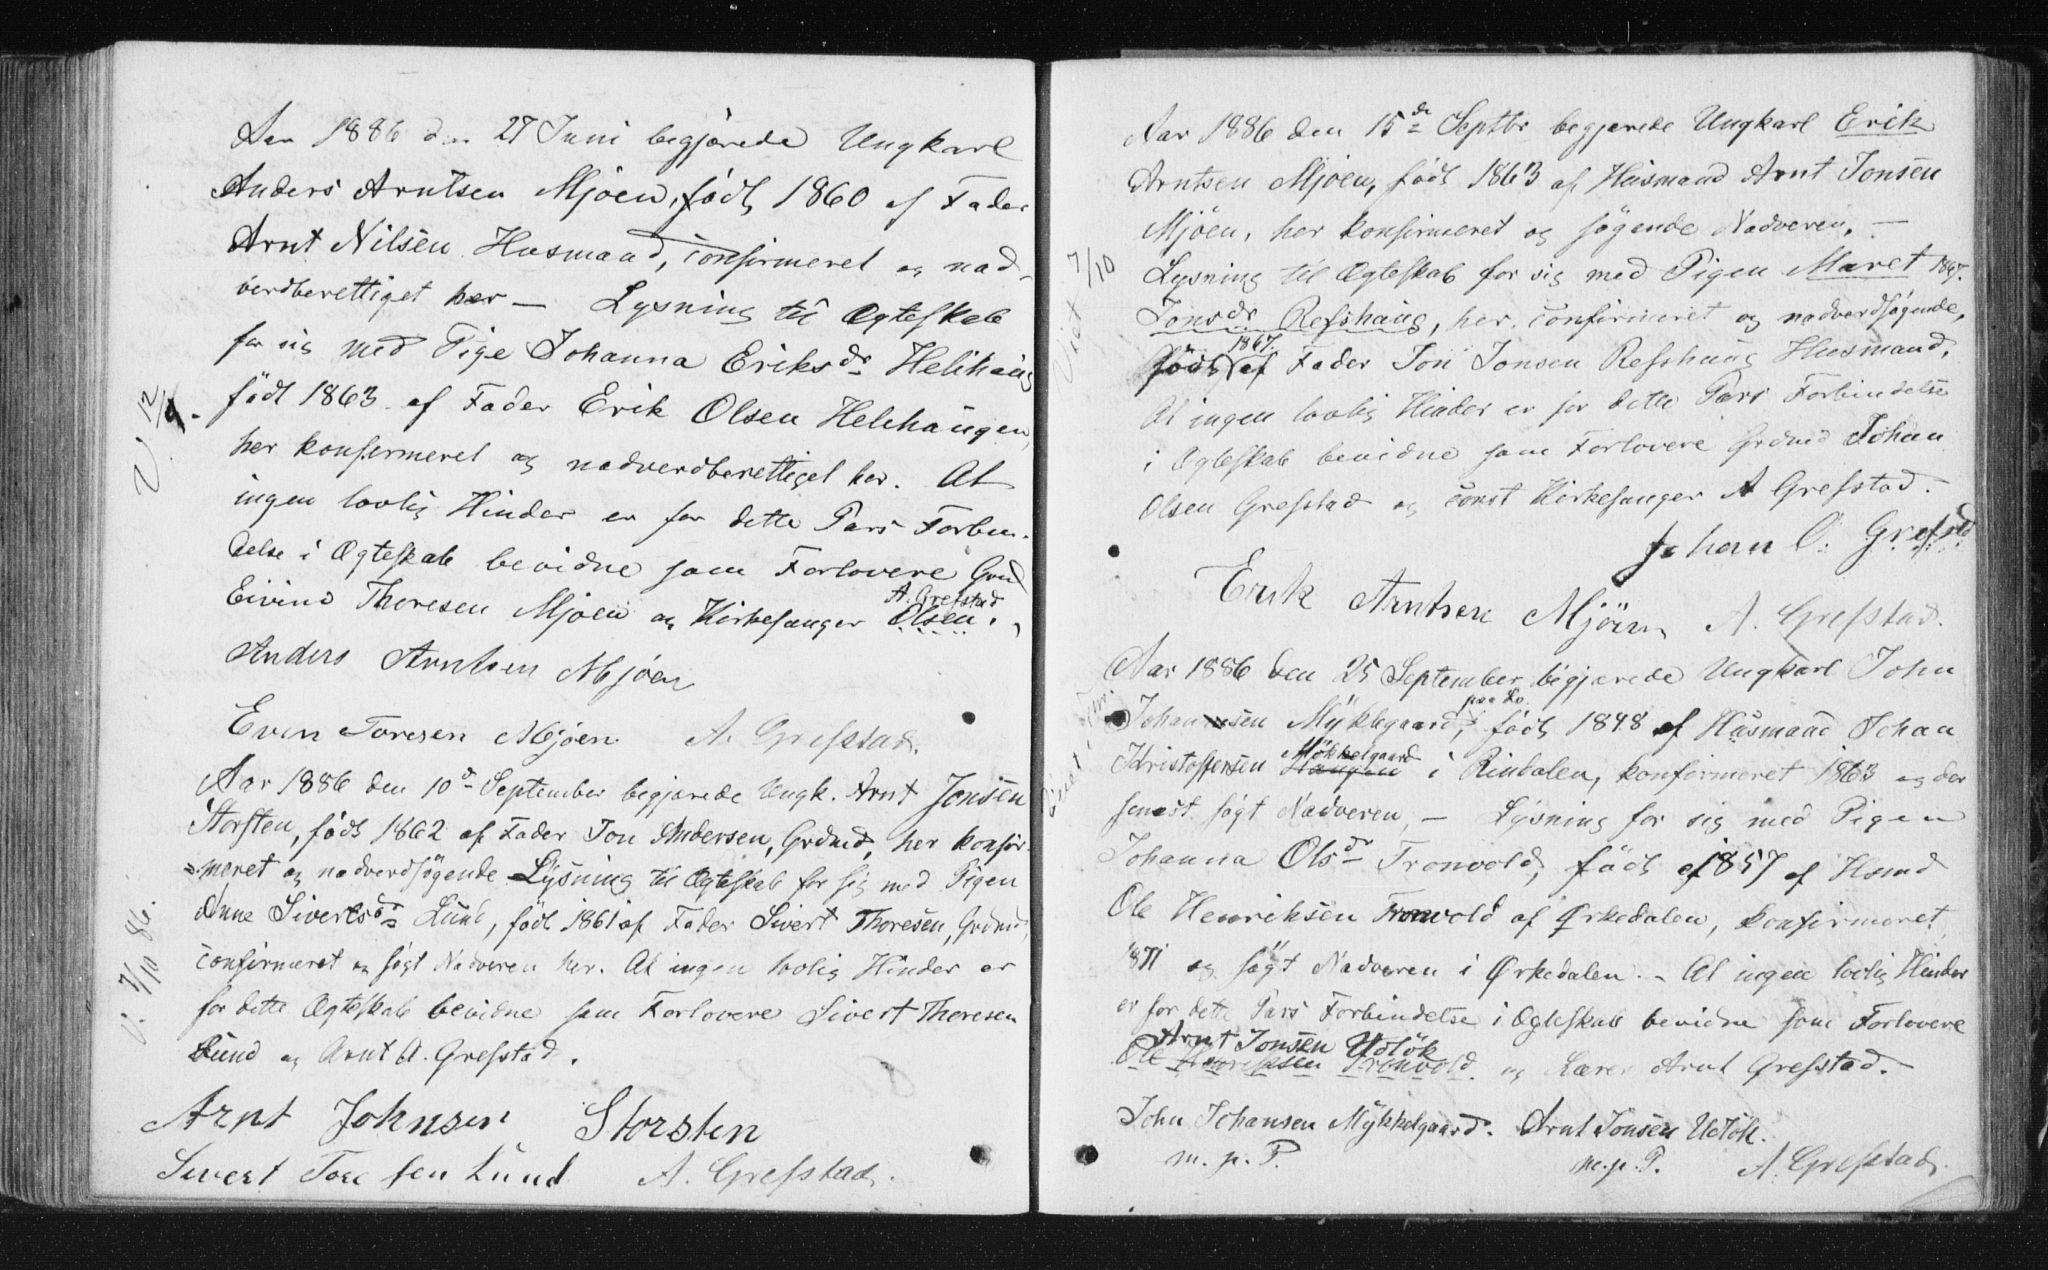 Aar 1886 den 27 Juni begjærede Ungkarl
Anders Arntsen Mjøen, født 1860 af Fader
Arnt Nilsen Husmand, confirmeret og nad-
verdberettiget her — Lysning til Ægteskab
for sig med Pige Johanna Eriksdr Helihaug
født 1863 af Fader Erik Olsen Helehaugen,
V. 12/9.
her konfirmeret og nadverdberettiget her. At
ingen lovlig Hinder er for dette Pars Forbin-
delse i Ægteskab bevidne som Forlovere Grd
A. Grefstad
Eivind Thoresen Mjøen og Kirkesanger Olsen.
Anders Arntsen Mjöen
Even Toresen Mjöen A. Grefstad.
Aar 1886 den 10de September begjærede Ungk. Arnt Jonsen
Storsten, født 1862 af Fader Jon Andersen, Grdmd, her konfir-
=meret og nadverdsøgende Lysning til Ægteskab for sig med Pigen
Anne Sivertsdr Lund, født 1861 af Fader Sivert Thoresen, Grdmd,
V. 7/10 86.
confirmeret og søgt Nadveren her. At ingen lovlig Hinder er
for dette Ægteskab bevidne som Forlovere Sivert Thoresen
Lund og Arnt A. Grefstad.
Arnt Johnsen Storsten
Sivert Toresen Lund A. Grefstad.
Aar 1886 den 15de Septbr begjærede Ungkarl Erik
Arntsen Mjøen, født 1863 af Husmand Arnt Jonsen
Mjöen, her konfirmeret og søgende Nadveren. —
Viet 7/10
Lysning til Ægteskab for sig med Pigen Maret 1867.
Jonsdr Refshaug, her confirmeret og nadverdsøgende,
1867.
født af Fader Jon Jonsen Refshaug Husmand.
At ingen lovlig Hinder er for dette Pars Forbindelse
i Ægteskab bevidne som Forlovere Grdmd Johan
Olsen Grefstad og const Kirkesanger A Grefstad.
Johan O. Grefstd
Erik Arntsen Mjöen A. Grefstad.
Aar 1886 den 25 September begjærede Ungkarl John
paa Lo
Johansen Myklegaard, født 1848 af Husmand Johan
Møkkelgaard
Kristoffersen Haugen i Rindalen, konfirmeret 1863 og der
senest søgt Nadveren, — Lysning for sig med Pigen
Johanna Olsdr Tronvold, født af 1857 af Hsmd
Ole Henriksen Tronvold af Ørkedalen, konfirmeret
1871 og søgt Nadveren i Ørkedalen. - At ingen lovlig Hinder
er for dette Pars Forbindelse i Ægteskab bevidne som Forlovere
Arnt Jonsen Udløk
Ole Henriksen Tronvold og Lærer Arnt Grefstad.
John Johansen Mykkelgaard. Arnt Jonsen Udløk.
m. p. P. m. p. P. A. Grefstad.